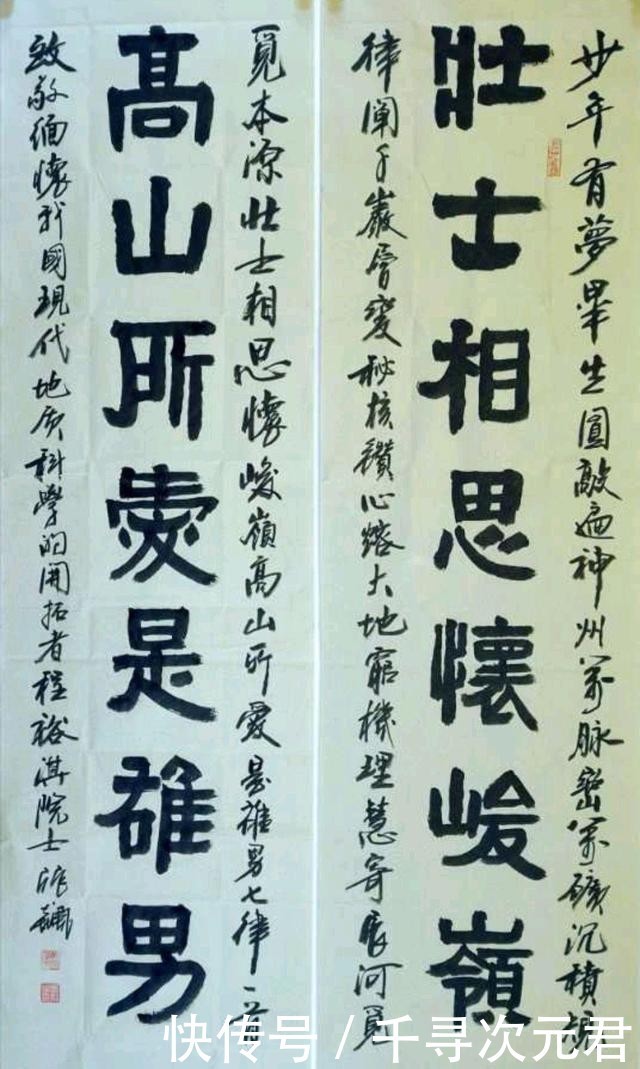 少年有夢畢生圓敲遍神州萬脈巒萬礦沉積規
壯士相思懷峻嶺
律闡千巖層變秘核鑽心熔大地窮機理慧寄長河覓
覓本源壯士相思懷峻嶺高山所愛是雄男七律一首
高山所愛是雄男
致敬緬懷我國現代地质科學的開拓者程裕淇院士
快传号/千寻次元君